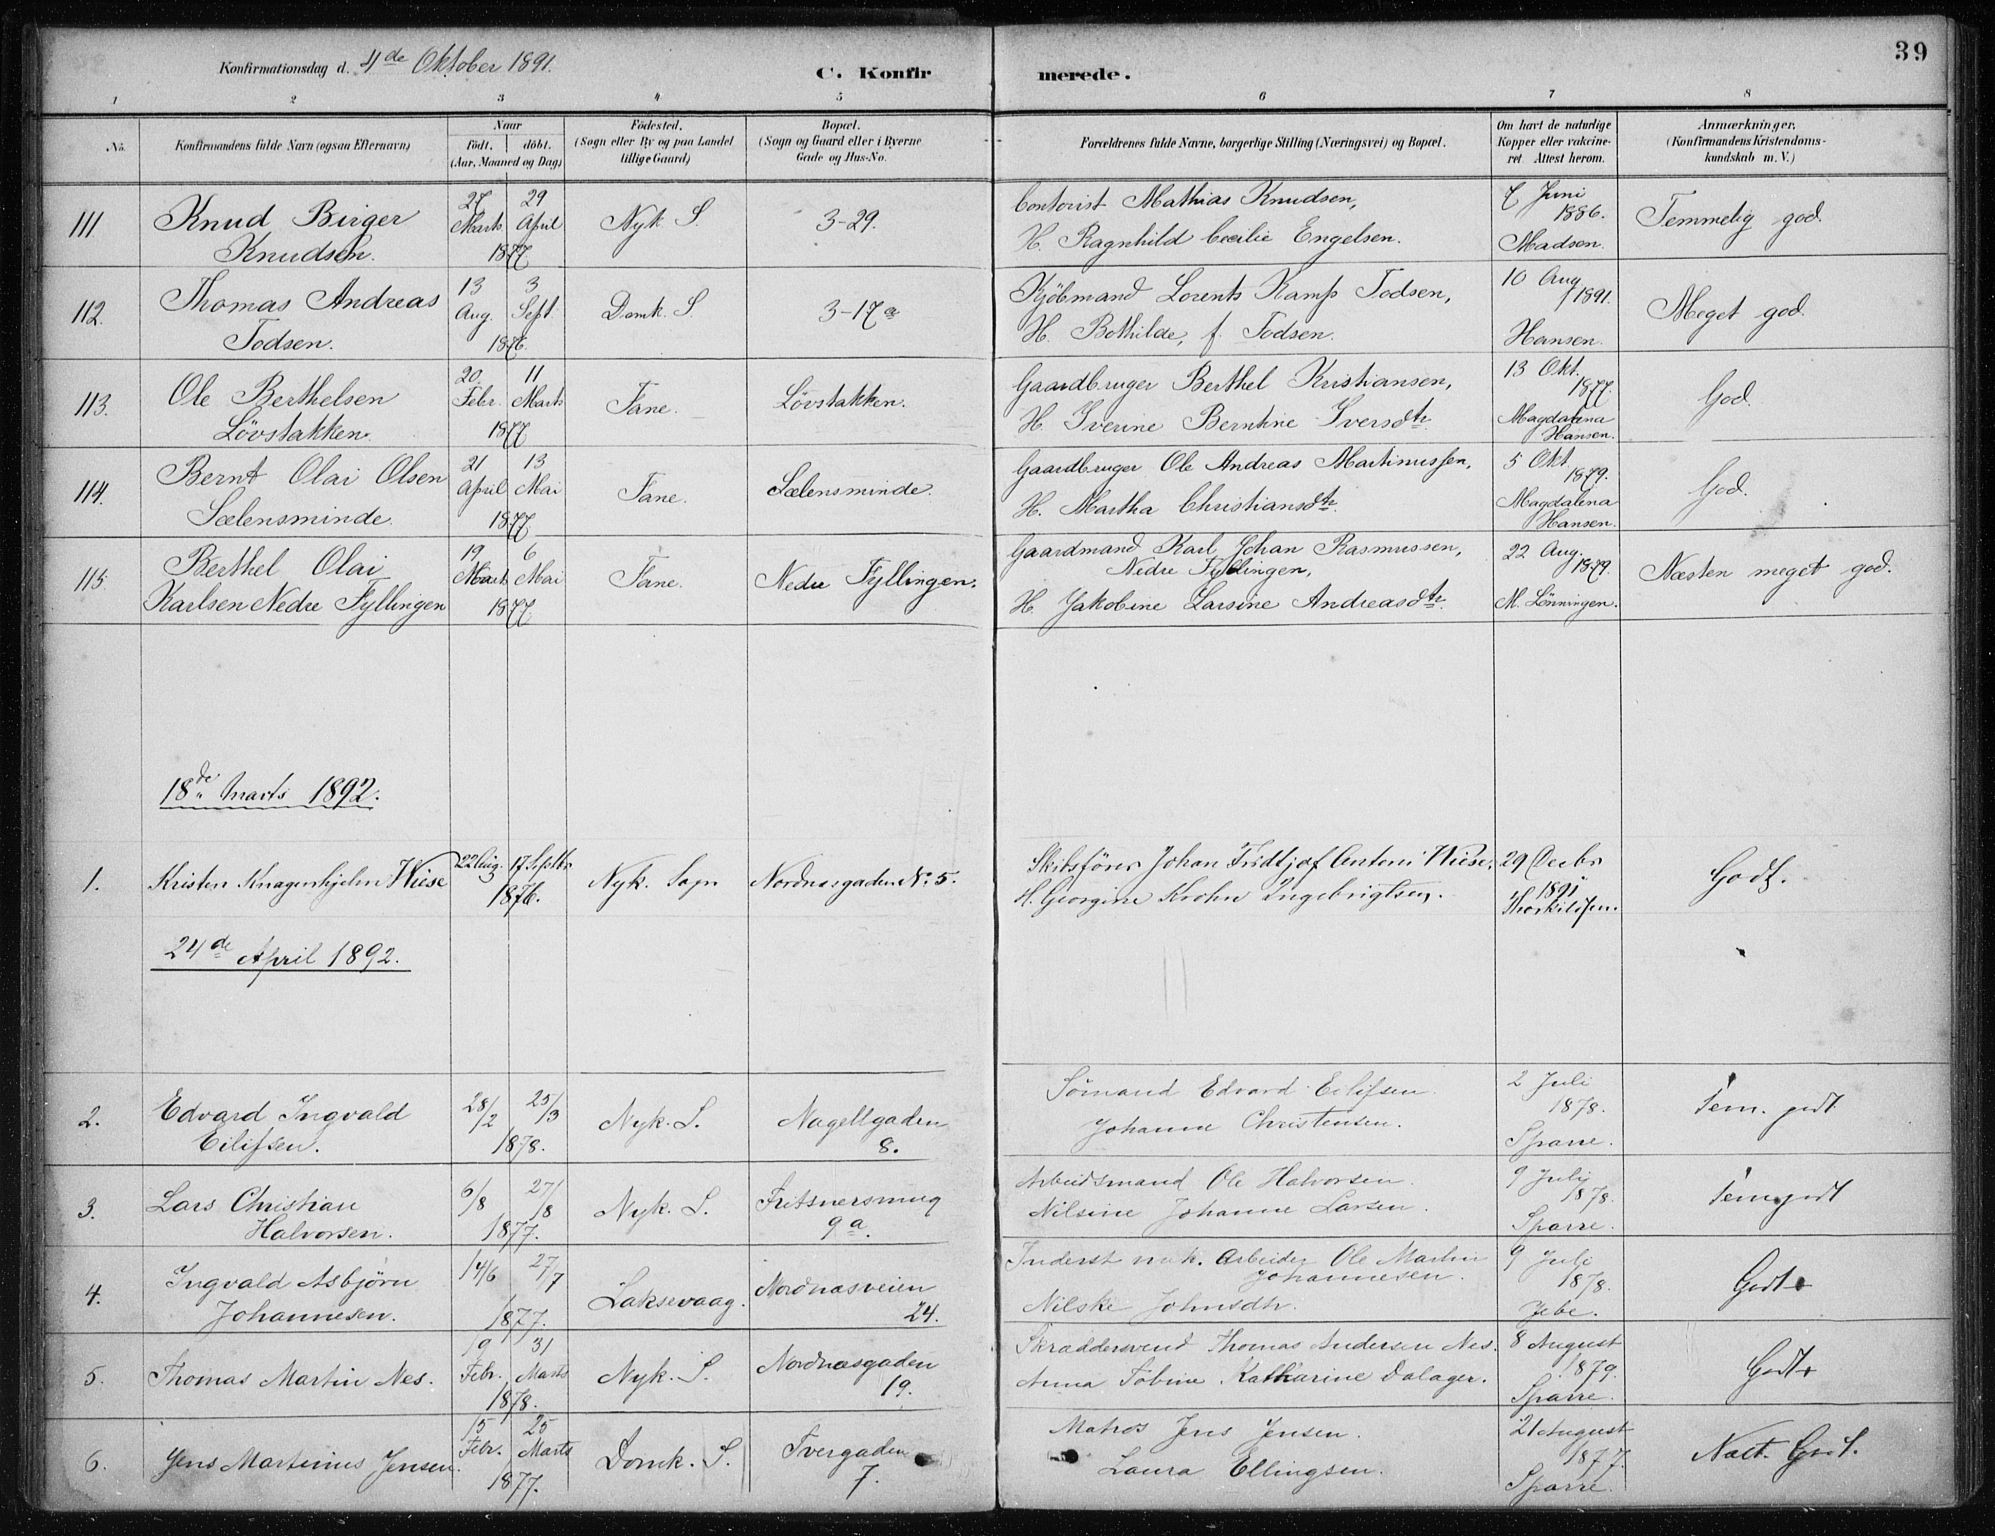 39
Konfirmationsdag d. 4de Oktober 1891.
C. Konfirmerede.
1 2 3 4 5 6 7 8
No.
Konfirmandens fulde Navn (ogsaa Efternavn)
Naar
Födt. döbt.
(Aar, Maaned og Dag)
Födested.
(Sogn eller By og paa Landet
tillige Gaard)
Bopæl.
(Sogn og Gaard eller i Byerne
Gade og Hus-No.
Forældrenes fulde Navne, borgerlige Stilling (Næringsvei) og Bopæl.
Om havt de naturlige
Kopper eller vakcine-
ret. Attest herom.
Anmærkninger.
(Konfirmandens Kristendoms-
kundskab m. V.)
111. Knud Birger
Knudsen.
27 Marts 29 April
1877
Nyk. S.
3-29.
Contorist Mathias Knudsen,
H. Ragnhild Cecilie Engelsen.
7 Juni
1886.
Madsen.
Temmelig god.
112. Thomas Andreas
Todsen.
13 Aug. 3 Sept.
1876.
Domk. S.
3-17a
Kjöbmand Lorents Kamp Todsen,
H. Bothilde, f. Todsen.
10 Aug
1891.
Hansen.
Meget god.
113. Ole Berthelsen
Lövstakken.
20. Febr. 11 Marts
1877
Fane.
Lövstakken.
Gaardbruger Berthel Kristiansen,
H. Iverine Berntine Iversdtr.
13 Okt.
1877.
Magdalena
Hansen.
God.
114. Bernt Olai Olsen
Sælensminde.
21 April 13 Mai
1877
Fane.
Sælensminde.
Gaardbruger Ole Andreas Martinussen,
H. Martha Christiansdtr.
5 Okt
1879.
Magdalena
Hansen.
God.
115. Berthel Olai
Karlsen Nedre Fyllingen
19 Marts 6 Mai
1877
Fane.
Nedre Fyllingen.
Gaardmand Karl Johan Rasmussen,
Nedre Fyllingen,
H. Jakobine Larsine Andreasdtr.
22 Aug.
1879.
M. Lönningen.
Næsten meget god.
18de Marts 1892.
1. Kristen Knagenhjelm Wiese
22 Aug. 17 Septbr
1876.
Nyk. Sogn
Nordnæsgaden No. 5.
Skibsförer Johan Fridtjof Antoni Wiese,
H. Georgine Krohn Ingebrigtsen.
29 Decbr
1891
Thorkildsen.
Godt.
24de April 1892.
2. Edvard Ingvald
Eilifsen.
28/2 25/3
1878.
Nyk. S.
Nagellgaden
8.
Sømand Edvard Eilifsen.
Johanne Christensen.
2 Juli
1878.
Sparre.
Tem. godt
3. Lars Christian
Halvorsen.
6/8 27/8
1877.
Nyk. S.
Fritsnersmug
9a.
Arbeidsmand Ole Halvorsen.
Nilsine Johanne Larsen.
9 July
1878.
Sparre.
Tem godt
4. Ingvald Asbjørn
Johannesen.
14/6 27/7
1877.
Laksevaag.
Nordnæsveien
24.
Inderst mek. Arbeider Ole Martin
Johannesen.
Nilske Johnsdtr.
9 Juli
1878.
Jebe.
Godt
5. Thomas Martin Nes.
19 Febr. 31 Marts
1878.
Nyk. S.
Nordnæsgaden
19.
Skræddersvend Thomas Andersen Nes.
Anna Tobine Katharine Dalager.
8 August
1879.
Sparre.
Godt
6. Jens Martinius Jensen.
15 Febr. 25 Marts
1877.
Domk. S.
Tvergaden
7.
Matros Jens Jensen.
Laura Ellingsen.
21 August
1877.
Sparre.
Næst. Godt.